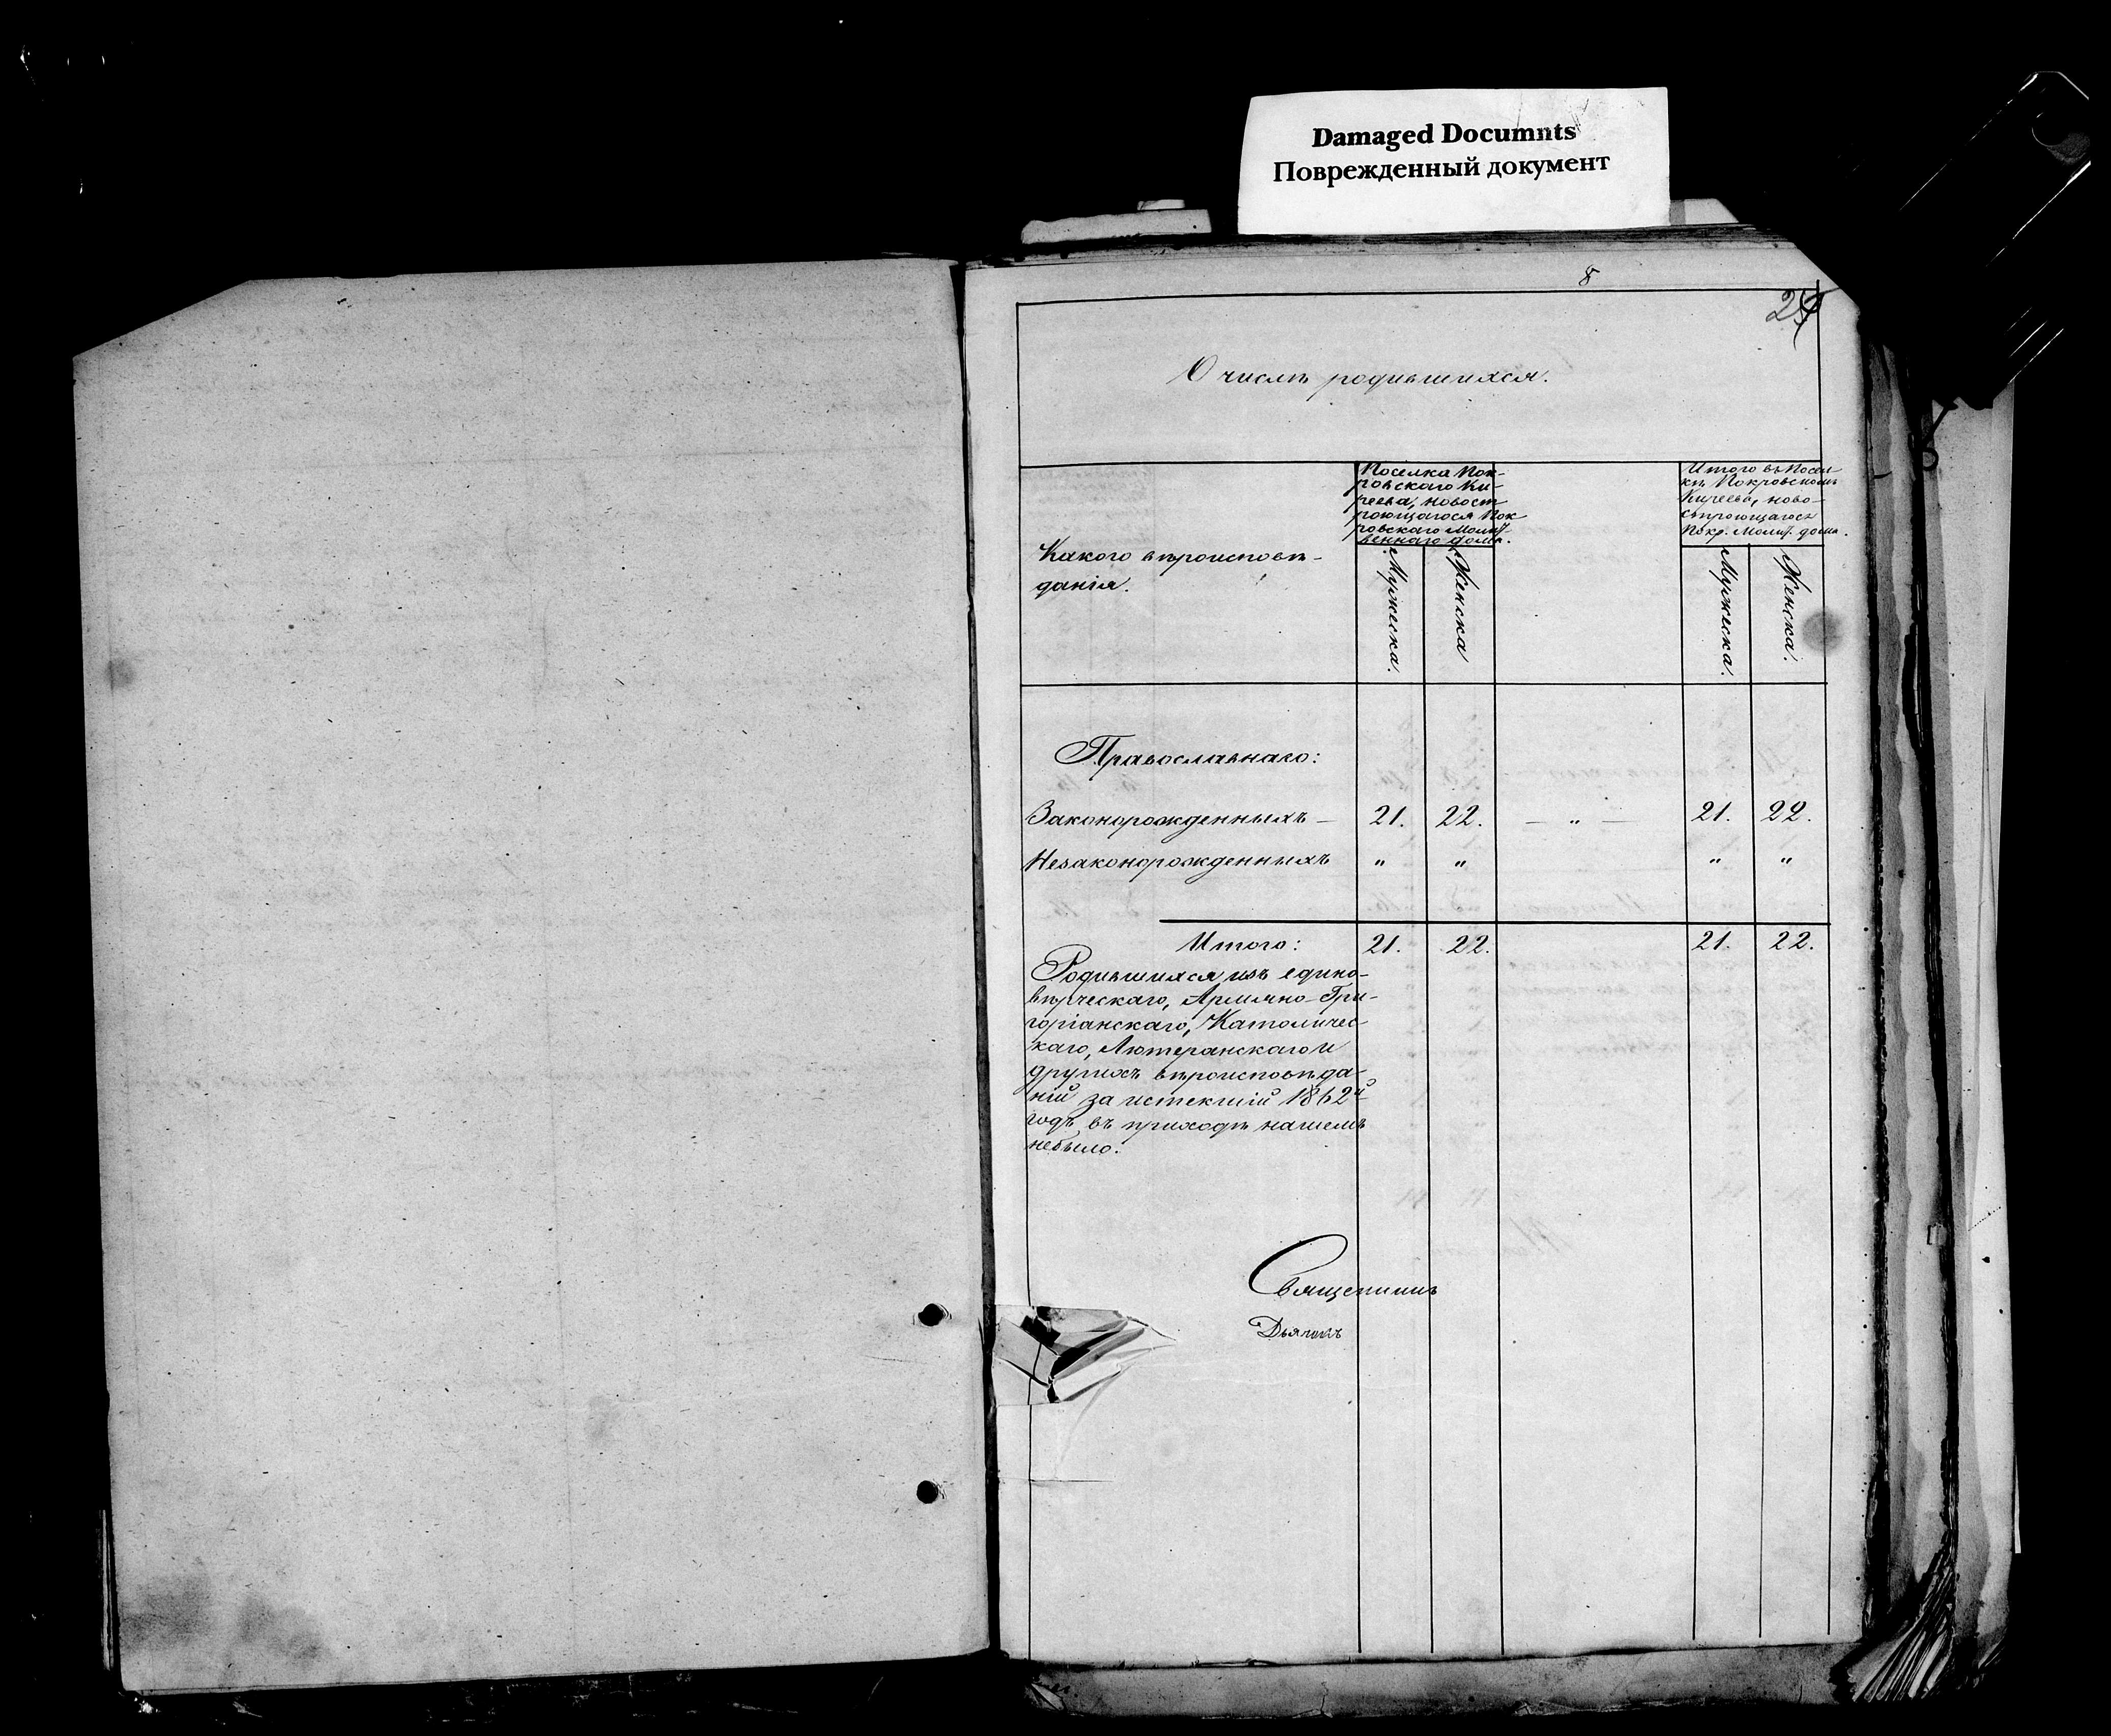 Damaged Documnts
Поврежденный документ
8
О числѣ родившихся.
Какого вѣроисповѣ-
данія.
Поселка Пок-
ровскаго Ки-
реева, новост
роющагося Пок
ровскаго Молит-
веннаго дома.
Мужеска.
Женска
Итого въ Посел-
кѣ Покровскомъ
Киреева, ново-
строющагося
Покр. Молит. дома.
Мужеска.
Женска.
Православнаго:
Законорожденныхъ — 21. 22. — „ — 21. 22.
Незаконорожденныхъ „ „ „ „
Итого: 21. 22. 21. 22.
Родившихся изъ едино-
вѣрческаго, Армяно-Гри-
горіанскаго, Католичес-
каго, Лютеранскаго и
другихъ вѣроисповѣда-
ній за истекшій 1862й
годъ въ приходѣ нашемъ
небыло.
Священникъ
Дьячокъ